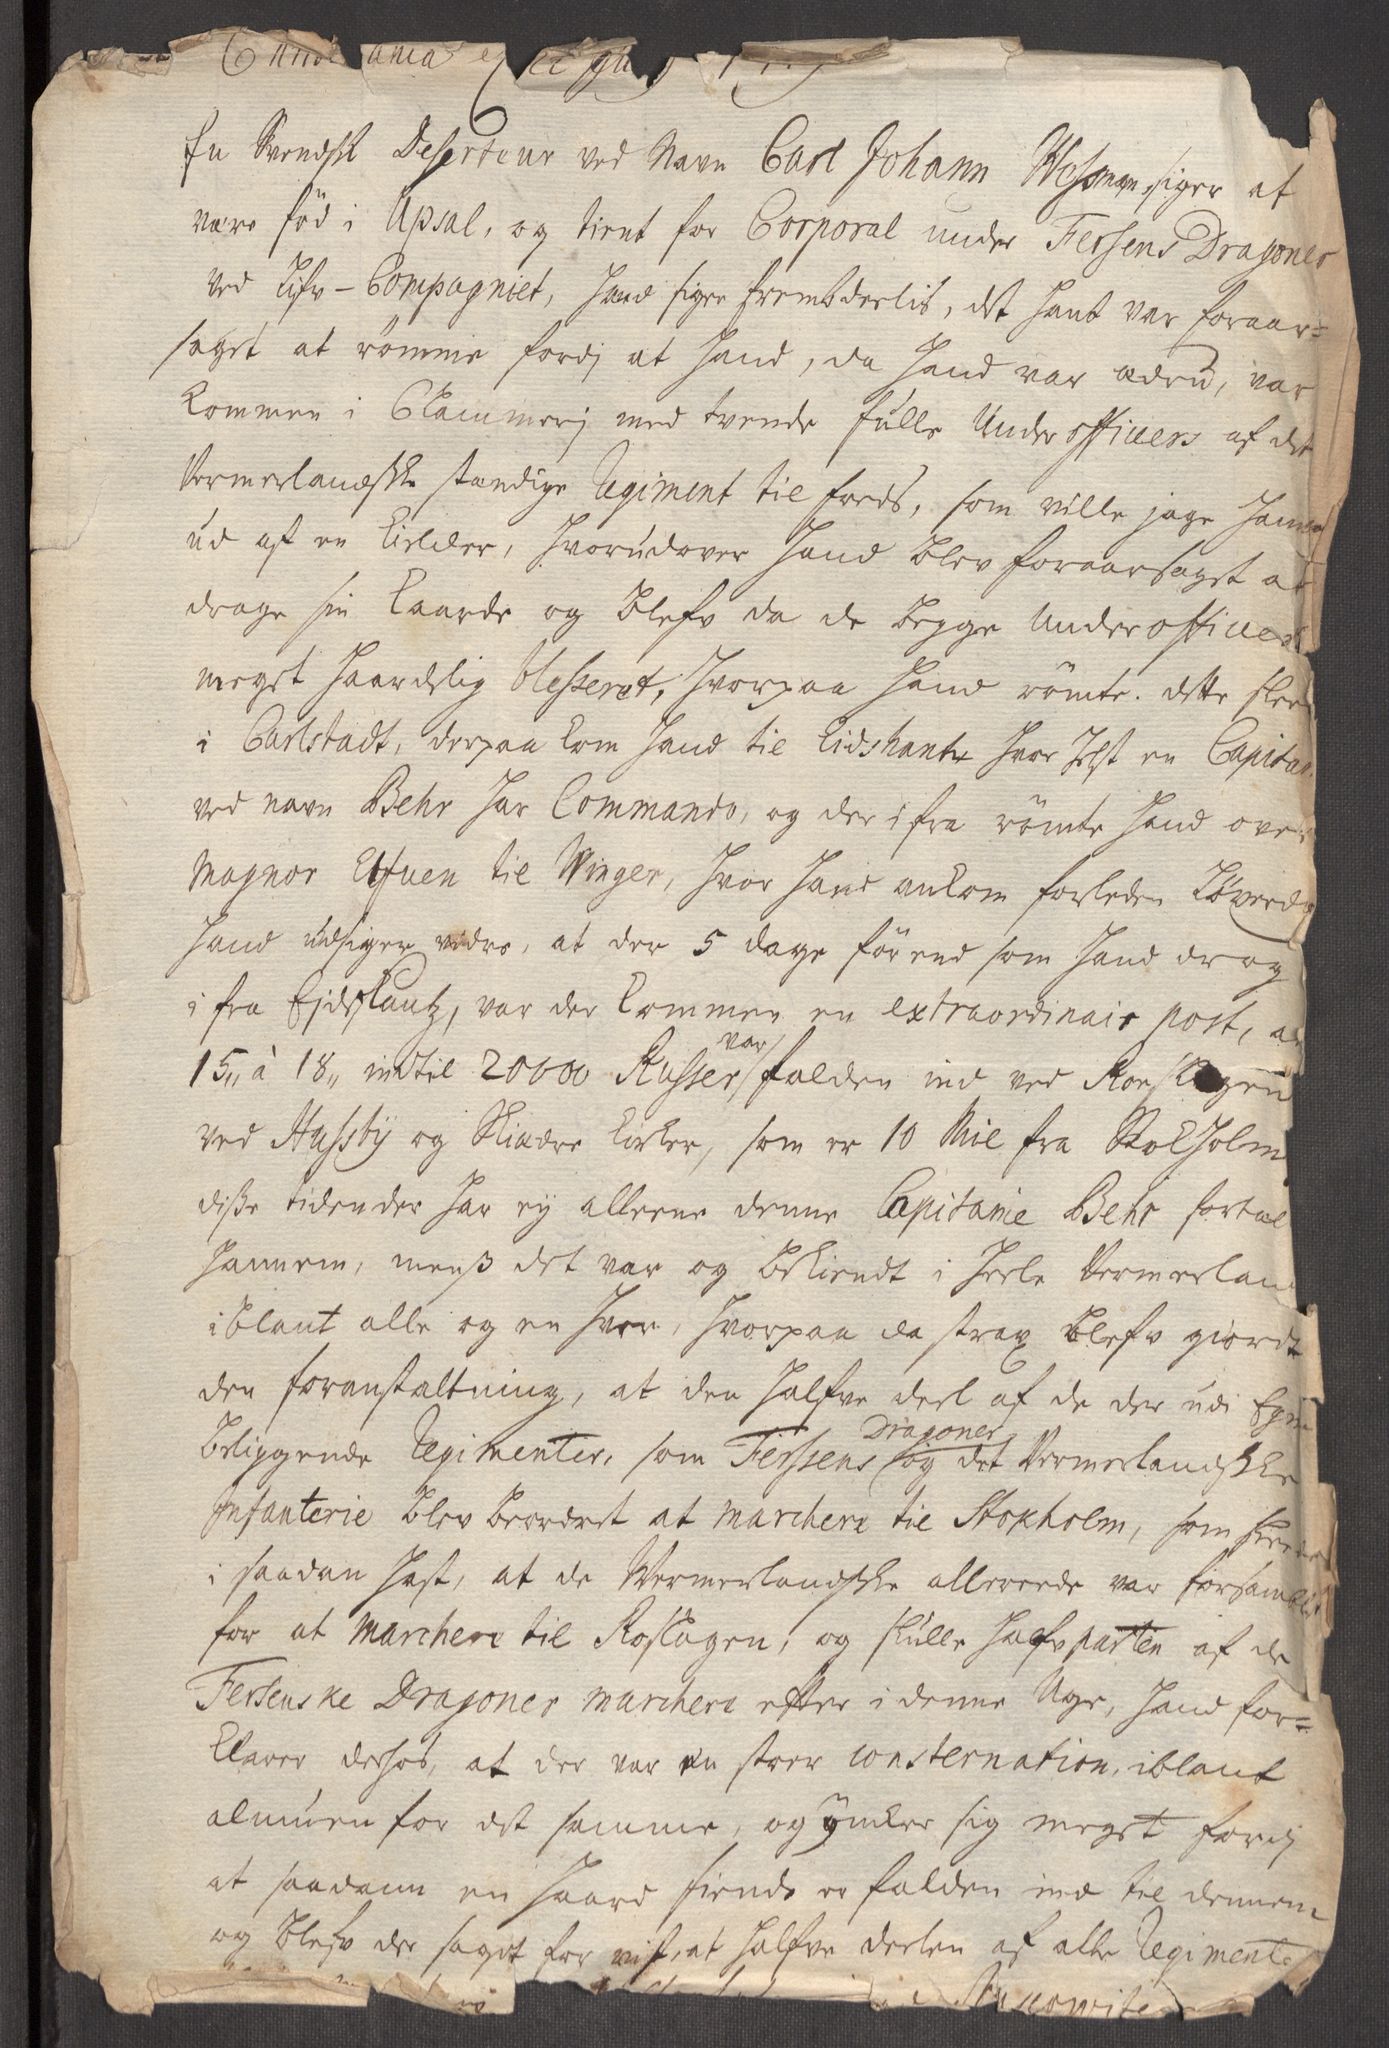 En Svendsk Deserteur ved Navn Carl Johann Wesman, siger at
være föd i Upsal, og tient for Corporal under Fersens Dragoner
ved Lifv-Compagniet, hand siger fremdeelis, det hant var foraar=
saget at römme fordj at hand, da hand var ædrü, var
kommen i Clammerj med tvende fulle Underofficers af det
Vermerlandske stændige Regiment til foeds, som ville jage ham
ud af en Kielder, hvorudover hand blev foraarsaget at
drage sin Kaarde og blefv da de begge Underofficers
meget haardelig blesseret, hvorpaa hand römte. dette skee
i Carlstadt, derpaa kom hand til Eidskantz hvor Jtzt en Capitai
ved navn Behr har Commando, og der ifra römte hand over
Magnor Elfuen til Winger, hvor hand ankom forleden Löverda
hand udsiger vidre, at der 5 dage förend som hand drog
i fra Ejdskantz, var der kommen en extraordinair post, at
15,, à 18,, indtil 20000 Russer var falden ind ved Roeslagen
ved Hussbÿ og Skiædre Kirker, som er 10 Mil fra Stokholm
disse tidender har ej alleene denne Capitaine Behr fortal
hannem, menss det var og bekiendt i heele Vermerlan
iblant alle og en hver, hvorpaa da strax blefv giordt
den foranstaltning, at den halfve deel af de der udi Egn
beliggende Regimenter, som Ferssens Dragoner og det Vermerlandske
Infanterie blev beordret at marchere til Stokholm, som skeede
i saadan hast, at de Wermerlandske allereede var forsamlet
for at marchere til Roslagen, og skulle halfvparten af de
Fersenske Dragoner marchere efter i denne Uge, hand for=
klarer derhos, at der var en stoer consternation, iblant
almuen for det samme, og ÿncker sig meget fordj
at saadann en haard fiende er falden ind til dennem
og blefv der saget for vist, at halfve deelen af alle Regimente